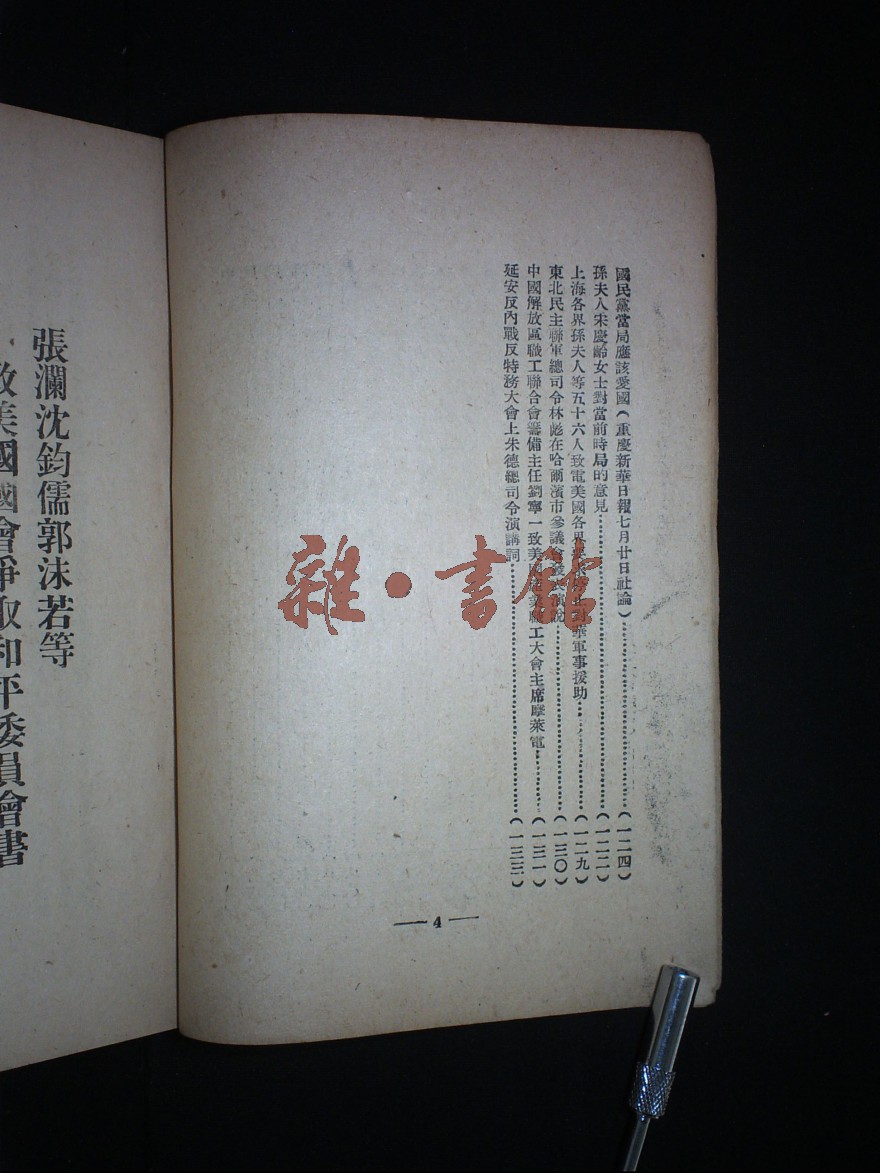 國民黨當局應該愛國(重慶新華日報七月廿日社論)……(一二四)
孫夫人宋慶齡女士對當前時局的意見……(一二二)
上海各界孫夫人等五十六人致電美國各界要求停止對華軍事援助……(一二九)
東北民主聯軍總司令林彪在哈爾濱市參議會發表演說……(一三〇)
中國解放區職工聯合會籌備主任劉寧一致美國職工大會主席摩萊電……(一三一)
延安反內戰反特務大會上朱德總司令演講詞……(一三三)
— 4 —
張瀾沈鈞儒郭沫若等
致美國國會爭取和平委員會書
雜·書館